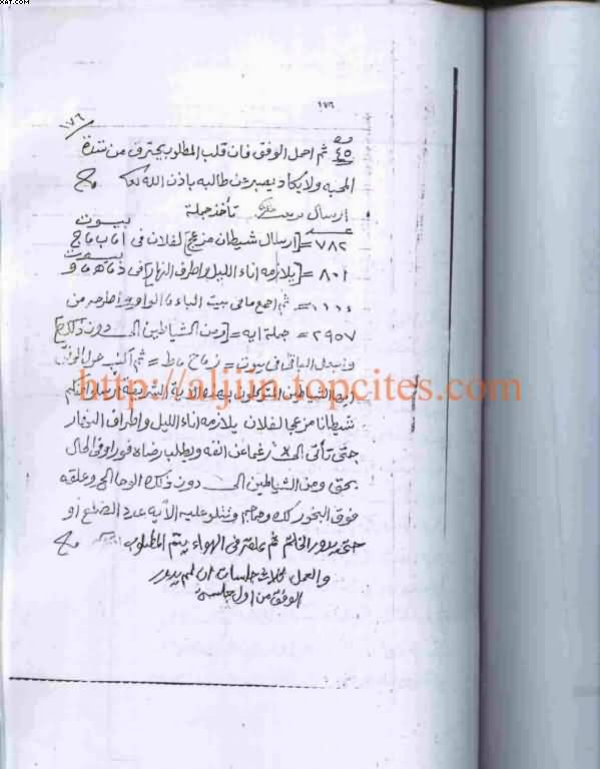 XAT.COM
١٧٦
١٧٦
٤٥ ثم احمل الوفق فان قلب المطلوب يحترق من شدة
المحبه ولا يكاد يصبر عن طالبه باذن الله
ارسال تأخذ جملة
بيوت
٧٨٢ = [ارسال شيطان مزعج] لفلان في
بيوت
٨٠١ = [يلازمه اناء الليل واطراف النهار] في
١١١٠ = ثم اجمع مافى بيت الباء واطرحه من
٢٩٥٧ = جملة ايه = [ومن الشياطين الى دون ذلك]
وتنزل الباقى في بيوت = ثم اكتب حول الوفق
http://aljin.topcites.com
ايها الشياطين المتوكلون بهذه الآية الشريفة ارسلوا اليكم
شيطانا مزعجا لفلان يلازمه اناء الليل واطراف النهار
حتى تأتى الى رغما عن انفه ويطلب رضاه فورا وفى الحال
بحق ومن الشياطين الى دون ذلك الوحا الخ وعلقه
فوق البخور وتتلو عليه الآية عدد الضلع او
حتى يدور الخاتم ثم علقه فى الهواء يتم المطلوب
والعمل ثلاث جلسات ان لم يدور
الوفق من اول جلسة